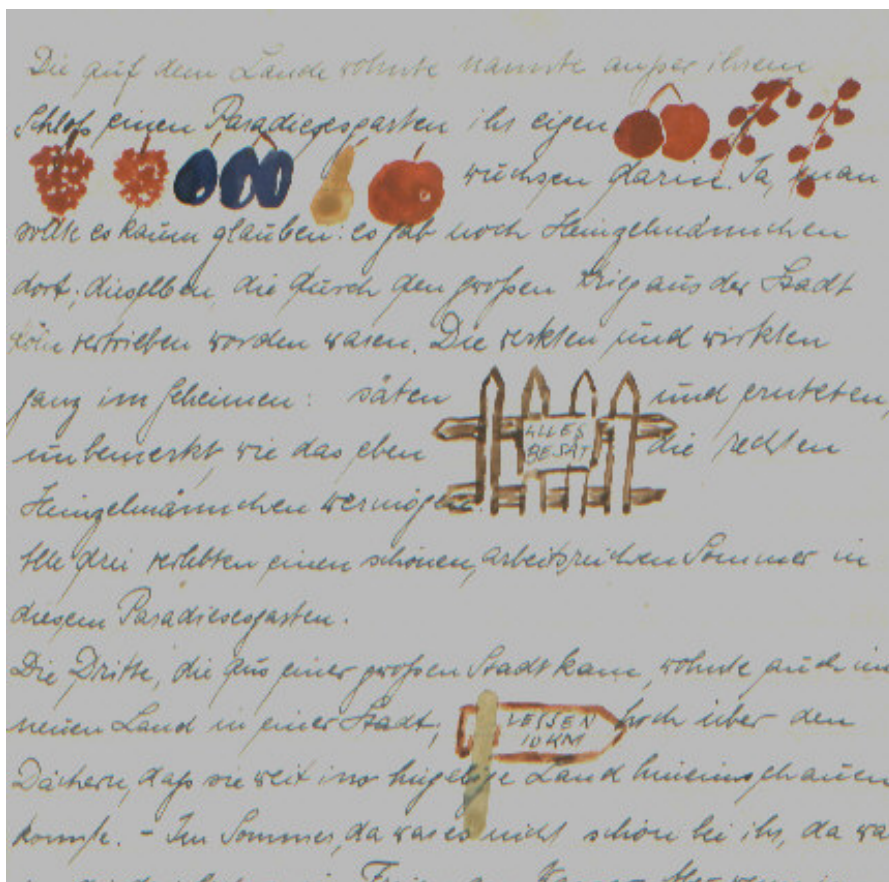 Die auf dem Lande wohnte nannte außer ihrem
Schloß einen Paradiesesgarten ihr eigen
wuchsen darin. Ja, man
sollte es kaum glauben: es gab noch Heinzelmännchen
dort; dieselben, die durch den großen Krieg aus der Stadt
Köln vertrieben worden waren. Die werkten und wirkten
ganz im Geheimen: säten und ernteten,
ALLES
BESÄT
unbemerkt, wie das eben die rechten
Heinzelmännchen vermögen.
Alle drei verlebten einen schönen, arbeitsreichen Sommer in
diesem Paradiesesgarten.
Die Dritte, die aus einer großen Stadt kam, wohnte auch im
neuen Land in einer Stadt, hoch über den
LESSEN
10 KM
Dächern, daß sie weit ins hügelige Land hineinschauen
konnte. - Im Sommer, da war es nicht schön bei ihr, da wa